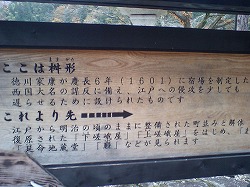 ますがた
ここは桝形
徳川家康が慶長6年(1601)に宿場を制定した
西国大名の謀反に備え、江戸への侵攻を少しでも
遅らせるために設けられたものです
これより先
江戸から明治の頃のままに整備された町並みと解体
復原された「下嵯峨屋」「上嵯峨屋」をはじめ、「
「延命地蔵堂」「 」などが見られます